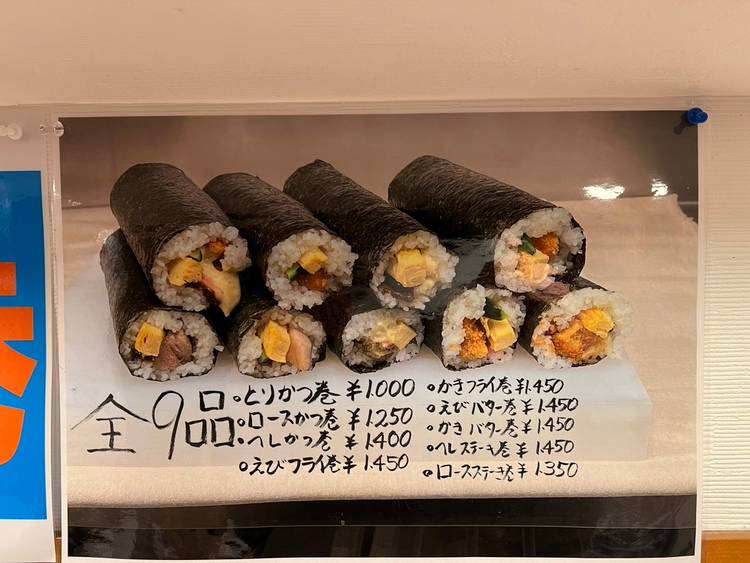 全9品
・とりかつ巻 ¥1.000
・ロースかつ巻 ¥1.250
・ヘレかつ巻 ¥1.400
・えびフライ巻 ¥1.450
・かきフライ巻 ¥1.450
・えびバター巻 ¥1.450
・かきバター巻 ¥1.450
・ヘレステーキ巻 ¥1.450
・ロースステーキ巻 ¥1.350